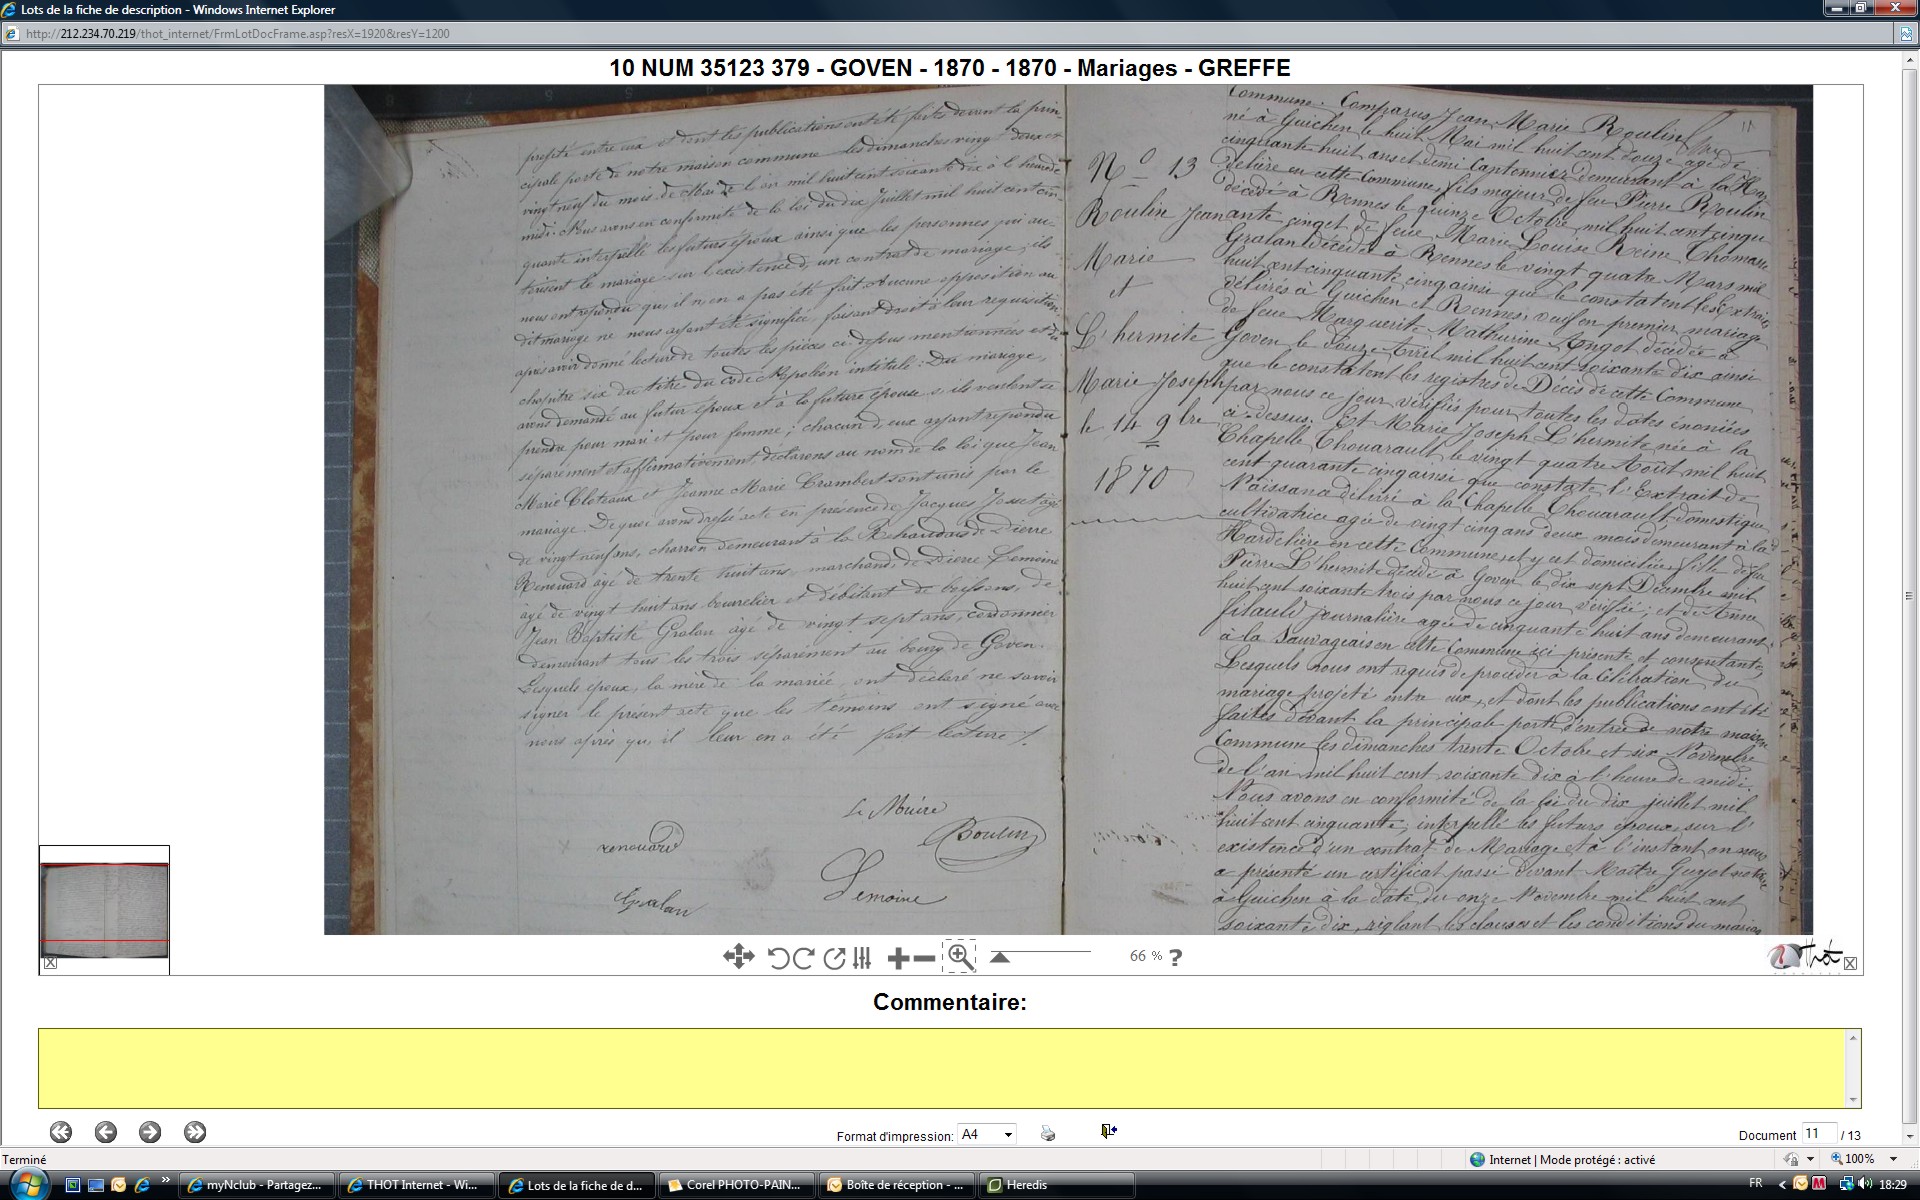 Lots de la fiche de description - Windows Internet Explorer
http://212.234.70.219/thot_internet/FrmLotDocFrame.asp?resX=1920&resY=1200
10 NUM 35123 379 - GOVEN - 1870 - 1870 - Mariages - GREFFE
projeté entre eux et dont les publications ont été faites devant la prin-
cipale porte de notre maison commune les dimanches vingt deux et
vingt neuf du mois de Mai de l'an mil huit cent soixante dix à l'heure de
midi. Nous avons en conformité de la loi du dix Juillet mil huit cent cin-
quante interpellé les futurs époux ainsi que les personnes qui au-
torisent le mariage sur l'existence d'un contrat de mariage; ils
nous ont répondu qu'il n'en a pas été fait. Aucune opposition au
dit mariage ne nous ayant été signifiée, faisant droit à leur requisition,
après avoir donné lecture de toutes les pièces ci-dessus mentionnées et du
chapitre six du titre du code Napoléon intitulé: Du mariage,
avons demandé au futur époux et à la future épouse s'ils veulent se
prendre pour mari et pour femme; chacun d'eux ayant répondu
séparément et affirmativement, déclarons au nom de la loi que Jean
Marie et Jeanne Marie sont unis par le
mariage. De quoi avons dressé acte en présence de Jacques âgé
de vingt neuf ans, charron demeurant à la de Pierre
Renouard âgé de trente huit ans, marchand, de Pierre Lemoine
âgé de vingt huit ans bourrelier et débitant de boissons, de
Jean Baptiste Gralan âgé de vingt sept ans, cordonnier
demeurant tous les trois séparément au bourg de Goven.
Lesquels époux, la mère de la mariée, ont déclaré ne savoir
signer le présent acte que les témoins ont signé avec
nous après qu'il leur en a été fait lecture /.
Le Maire
Renouard
Boulin
Lemoine
Gralan
11
N° 13
Roulin Jean
Marie
et
L'hermite
Marie Joseph
le 14 9bre
1870
Commune. Comparus Jean Marie Roulin
né à Guichen le huit Mai mil huit cent douze agé de
cinquante huit ans et demi Cantonnier demeurant à la Har-
delière en cette Commune, fils majeur de feu Pierre Roulin
décédé à Rennes le quinze Octobre mil huit cent cinqu-
ante cinq et de feue Marie Louise Reine Thomase
Gralan décédée à Rennes le vingt quatre Mars mil
huit cent cinquante cinq ainsi que le constatent les Extraits
délivrés à Guichen et Rennes, veuf en premier mariage
de feue Marguerite Mathurine Angot décédée à
Goven le douze Avril mil huit cent soixante dix ainsi
que le constatent les registres de Décès de cette Commune
par nous ce jour vérifiés pour toutes les dates énoncées
ci-dessus. Et Marie Joseph L'hermite née à la
Chapelle Chouarault le vingt quatre Août mil huit
cent quarante cinq ainsi que constate l'Extrait de
Naissance délivré à la Chapelle Chouarault, domestique
cultivatrice agée de vingt cinq ans deux mois demeurant à la
Hardelière en cette Commune et y est domiciliée, fille de feu
Pierre L'hermite décédé à Goven le dix sept Décembre mil
huit cent soixante trois par nous ce jour vérifié; et de Anne
filauld journalière agée de cinquante huit ans demeurant
à la Sauvageais en cette Commune ici présente et consentante
Lesquels nous ont requis de procéder à la Célébration du
mariage projeté entre eux, et dont les publications ont été
faites devant la principale porte d'entrée de notre maison
Commune les dimanches trente Octobre et six Novembre
de l'an mil huit cent soixante dix à l'heure de midi.
Nous avons en conformité de la loi du dix juillet mil
huit cent cinquante, interpellé les futurs époux sur l'
existence d'un contrat de Mariage et à l'instant on nous
a présenté un certificat passé devant Maître Guyot notaire
à Guichen à la date du onze Novembre mil huit cent
soixante dix, réglant les clauses et les conditions du mariage
66 %
?
Thot
Commentaire:
Format d'impression: A4
Document 11 / 13
Terminé
Internet | Mode protégé : activé
100%
myNclub - Partagez...
THOT Internet - Wi...
Lots de la fiche de d...
Corel PHOTO-PAIN...
Boîte de réception - ...
Heredis
FR
18:29